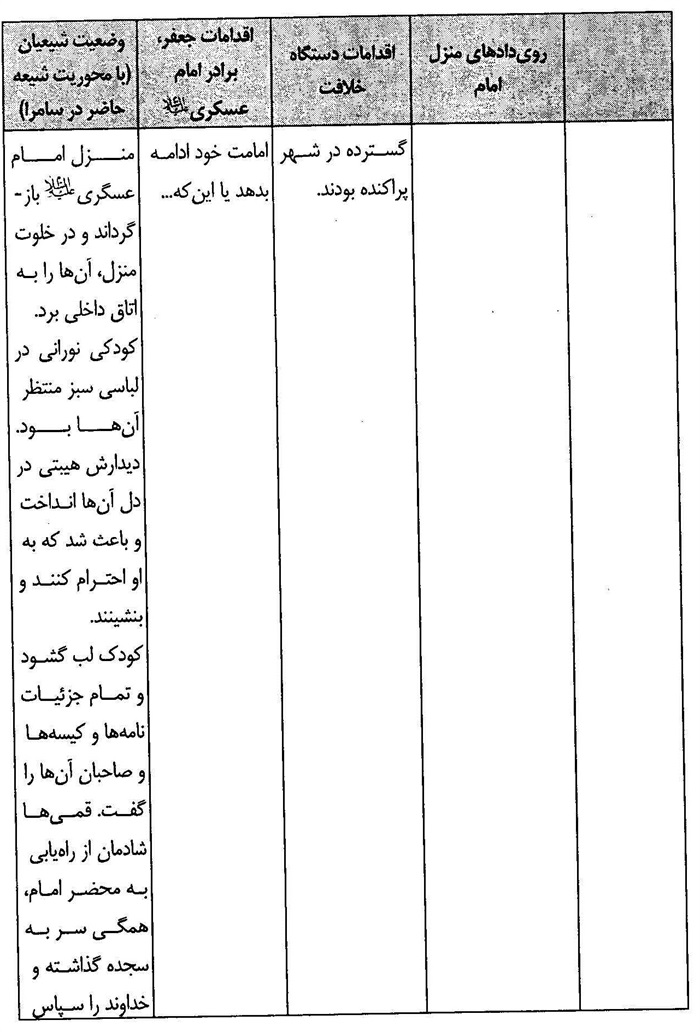 روی‌دادهای منزل
امام
اقدامات دستگاه
خلافت
اقدامات جعفر،
برادر امام
عسکری علیه‌السلام
وضعیت شیعیان
(با محوریت شیعه
حاضر در سامرا)
گسترده در شهر
پراکنده بودند.
امامت خود ادامه
بدهد یا این‌که...
منزل امام
عسگری علیه‌السلام باز-
گرداند و در خلوت
منزل، آن‌ها را به
اتاق داخلی برد.
کودکی نورانی در
لباسی سبز منتظر
آن‌ها بود.
دیدارش هیبتی در
دل آن‌ها انداخت
و باعث شد که به
او احترام کنند و
بنشینند.
کودک لب گشود
و تمام جزئیات
نامه‌ها و کیسه‌ها
و صاحبان آن‌ها را
گفت. قمی‌ها
شادمان از راه‌یابی
به محضر امام،
همگی سر به
سجده گذاشته و
خداوند را سپاس